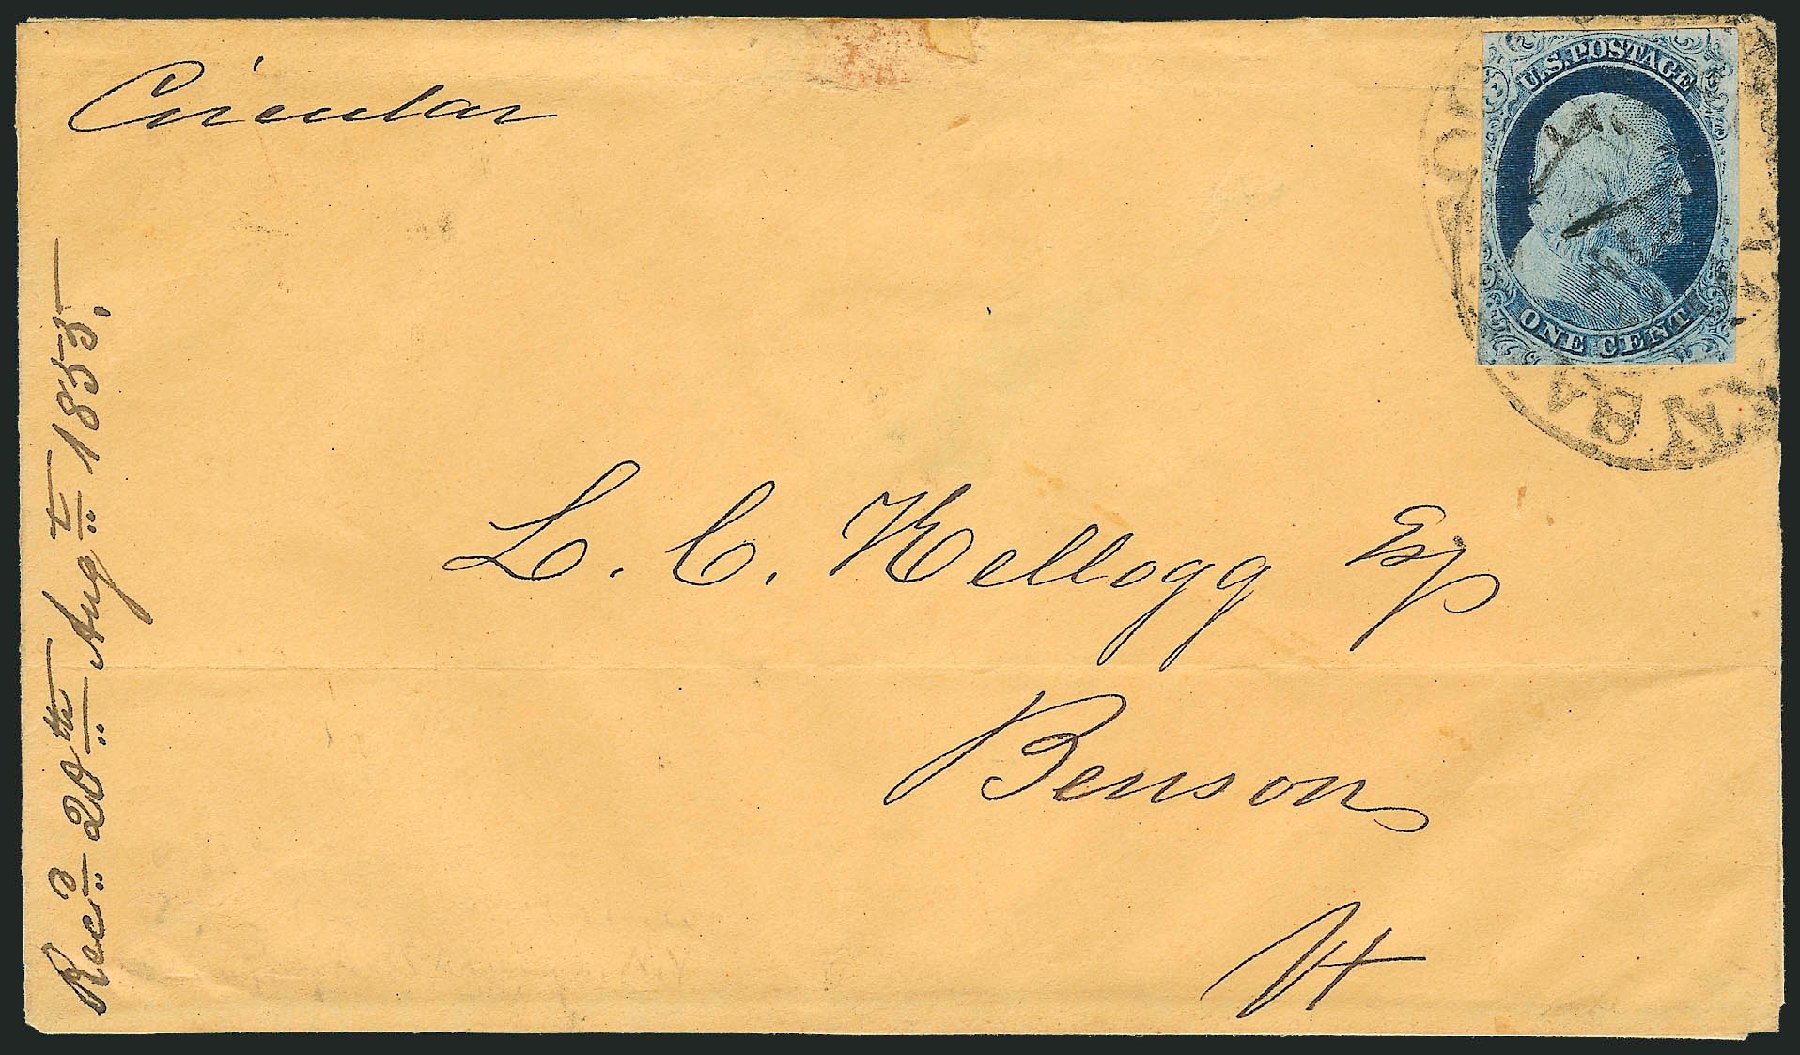 Circular
U.S. POSTAGE
ONE CENT
L. C. Kellogg Esq
Benson
Vt
Recd 20th Augt 1855.